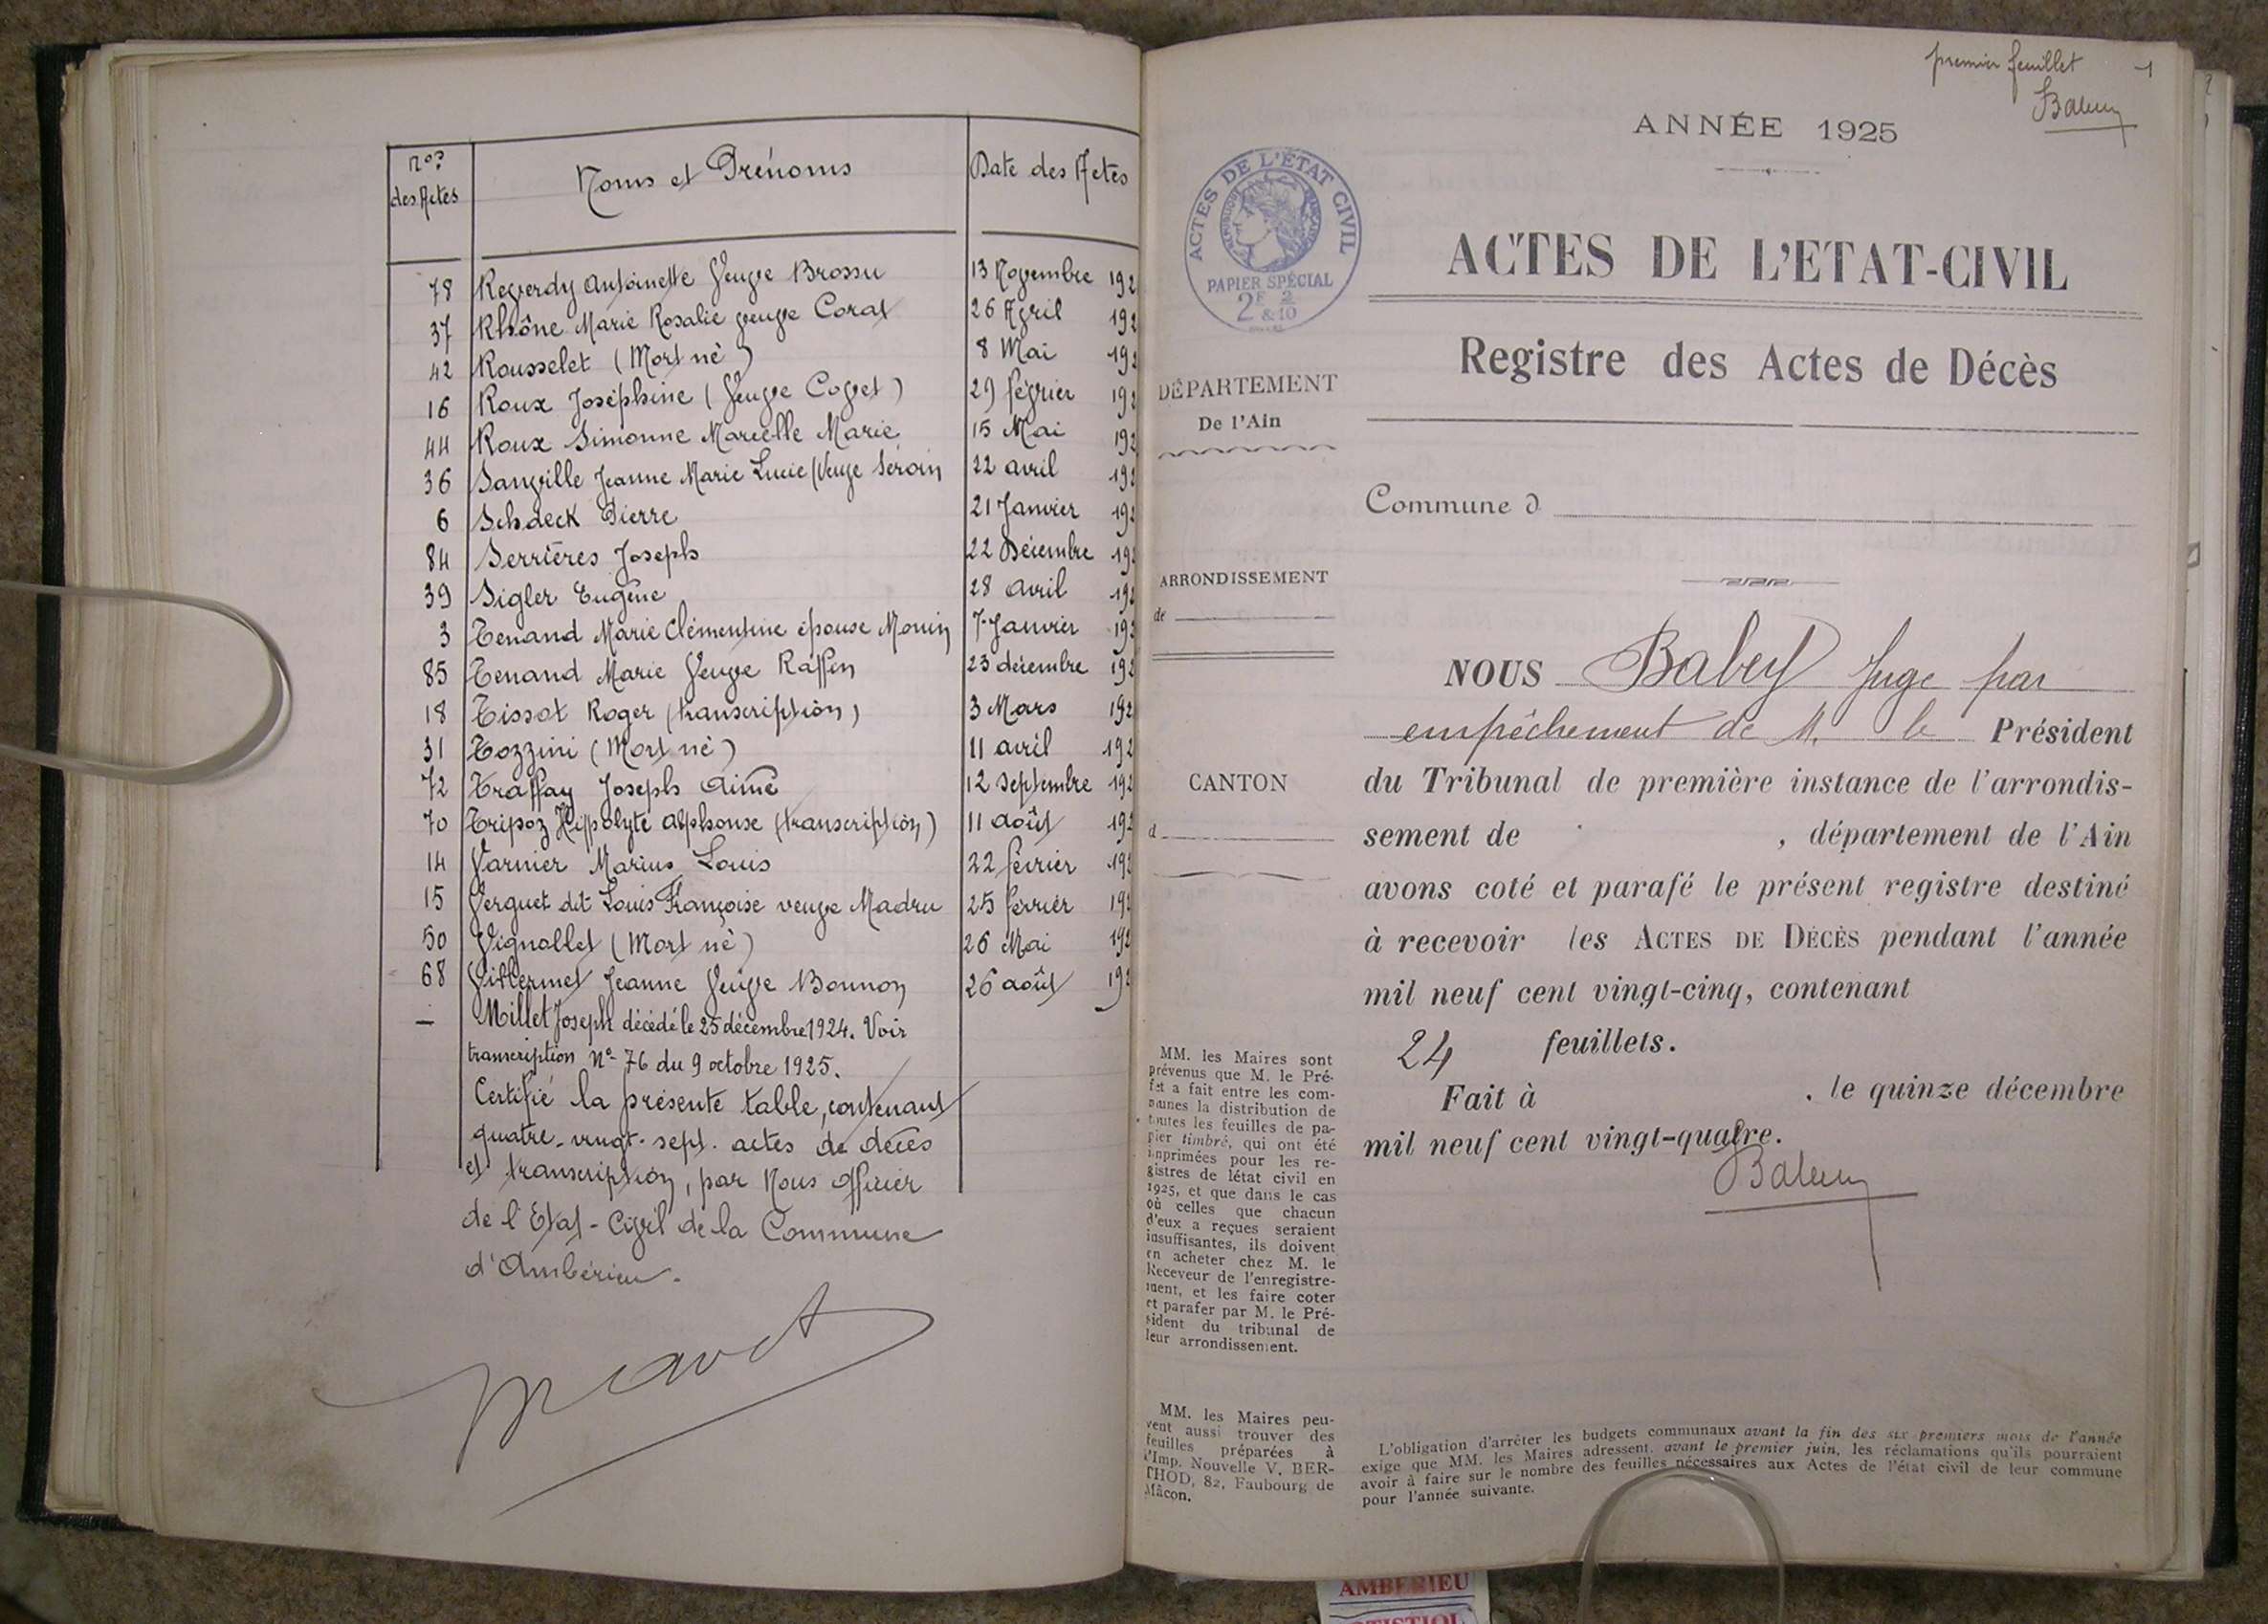 Nos des Actes Noms et Prénoms Date des Actes
78 Reverdy Antoinette Veuve Brossu 13 Novembre 192
37 Rhône Marie Rosalie veuve Corat 26 Avril 192
42 Rousselet (Mort né) 8 Mai 192
16 Roux Joséphine (Veuve Coget) 29 février 192
44 Roux Simonne Marcelle Marie 15 Mai 192
36 Sanville Jeanne Marie Lucie (Veuve Séroin 22 avril 192
6 Schaeck Pierre 21 Janvier 192
84 Serrières Joseph 22 Décembre 192
39 Sigler Eugène 28 avril 192
3 Tenand Marie Clémentine épouse Monin 7 Janvier 192
85 Tenand Marie Veuve Raffin 23 décembre 192
18 Tissot Roger (transcription) 3 Mars 192
31 Tozzini (Mort né) 11 avril 192
72 Traffay Joseph Aimé 12 septembre 192
70 Tripoz Hippolyte alphonse (transcription) 11 août 192
14 Varnier Marius Louis 22 février 192
15 Verguet dit Louis Françoise veuve Madru 25 février 192
50 Vignollet (Mort né) 26 Mai 192
68 Vuillermet Jeanne Veuve Bonnon 26 août 192
— Millet Joseph décédé le 25 décembre 1924. Voir
transcription No 76 du 9 octobre 1925.
Certifié la présente table, contenant
quatre-vingt-sept. actes de décès
et transcription, par Nous officier
de l'Etat-Civil de la Commune
d'Ambérieu.
premier feuillet 1
Babey
ANNÉE 1925
ACTES DE L'ÉTAT CIVIL
RÉPUBLIQUE FRANÇAISE
PAPIER SPÉCIAL
2F & 2/10
ACTES DE L'ETAT-CIVIL
Registre des Actes de Décès
DÉPARTEMENT
De l'Ain
Commune d
ARRONDISSEMENT
de
CANTON
d
NOUS Babey Juge par
empêchement de M. le Président
du Tribunal de première instance de l'arrondis-
sement de , département de l'Ain
avons coté et parafé le présent registre destiné
à recevoir les ACTES DE DÉCÈS pendant l'année
mil neuf cent vingt-cinq, contenant
24 feuillets.
Fait à , le quinze décembre
mil neuf cent vingt-quatre.
Babey
MM. les Maires sont
prévenus que M. le Pré-
fet a fait entre les com-
munes la distribution de
toutes les feuilles de pa-
pier timbré, qui ont été
imprimées pour les re-
gistres de létat civil en
1925, et que dans le cas
où celles que chacun
d'eux a reçues seraient
insuffisantes, ils doivent
en acheter chez M. le
Receveur de l'enregistre-
ment, et les faire coter
et parafer par M. le Pré-
sident du tribunal de
leur arrondissement.
MM. les Maires peu-
vent aussi trouver des
feuilles préparées à
l'Imp. Nouvelle V. BER-
THOD, 82, Faubourg de
Mâcon.
L'obligation d'arrêter les budgets communaux avant la fin des six premiers mois de l'année
exige que MM. les Maires adressent, avant le premier juin, les réclamations qu'ils pourraient
avoir à faire sur le nombre des feuilles nécessaires aux Actes de l'état civil de leur commune
pour l'année suivante.
AMBERIEU